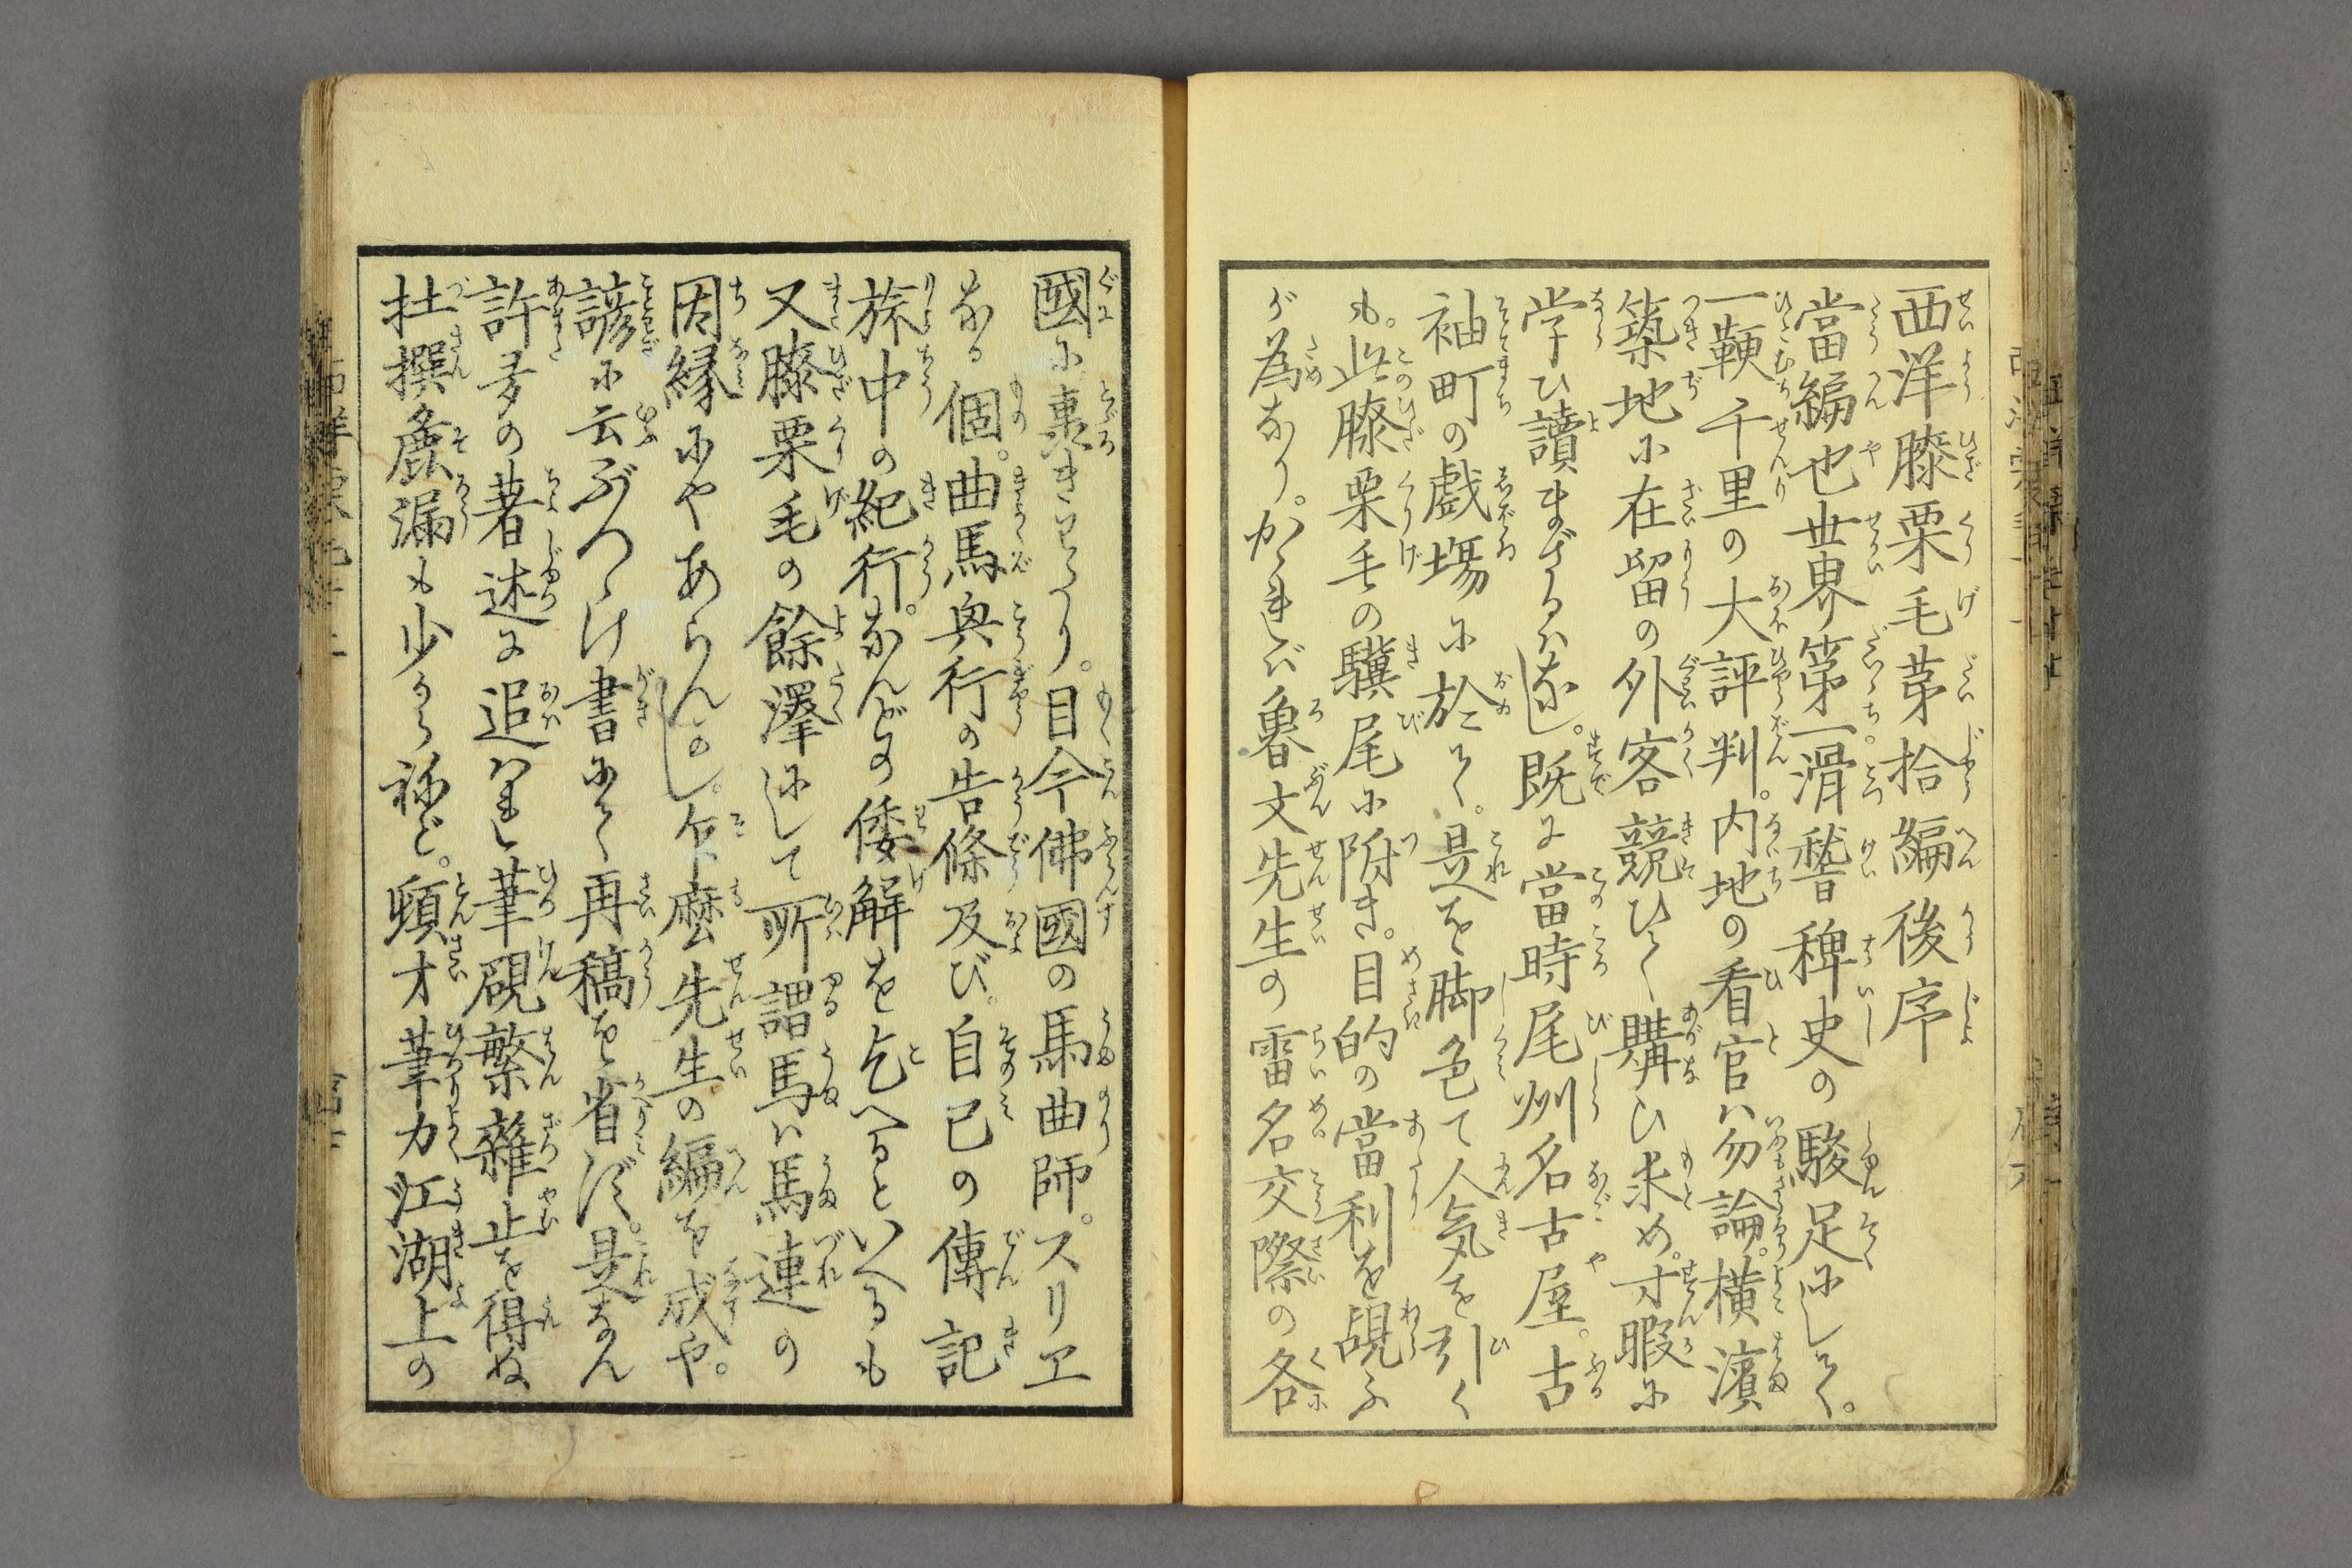 西洋膝栗毛第拾編後序
當編也世界第一滑稽稗史の駿足にして。
一鞭千里の大評判。内地の看官ハ勿論。横濱
築地に在留の外客競ひて購ひ求め。寸暇に
学ひ讀まざるハなし。既に當時尾州名古屋。古
袖町の戯塲に於て。是を脚色て人気を引く
も。此膝栗毛の驥尾に附き。目的の當利を覘ふ
が為なり。かゝれバ魯文先生の雷名交際の各
國に轟きわたり。目今佛國の馬曲師。スリヱ
なる個。曲馬興行の告條及び。自己の傳記
旅中の紀行。なんどの倭解を乞へるといへるも
又膝栗毛の餘澤にして所謂馬ハ馬連の
因縁にやあらんかし。乍麼先生の編を成や。
諺に云ぶツつけ書にて再稿を省ず。是なん
許多の著述に追ハれし筆硯繁雜止を得ぬ
杜撰麁漏も少からねど。頓才筆力江湖上の